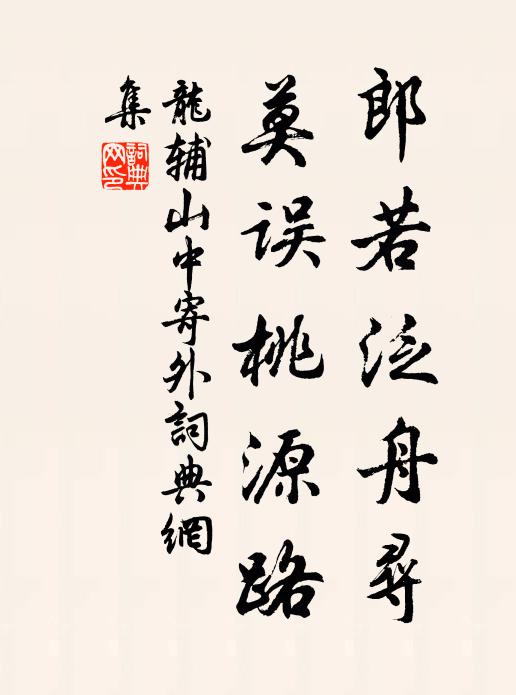 郎若泛舟尋
莫误桃源路
龍辅山中寄外詞典網
集
詞典
网印